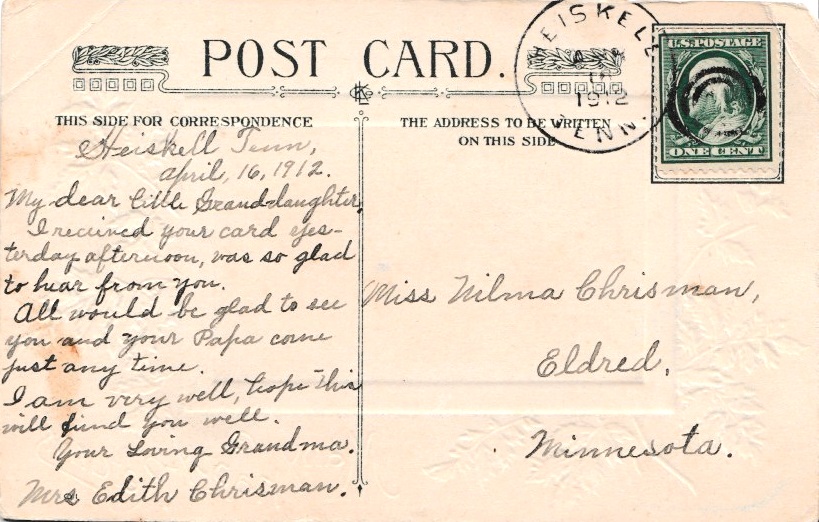 POST CARD.
THIS SIDE FOR CORRESPONDENCE
THE ADDRESS TO BE WRITTEN
ON THIS SIDE
HEISKELL
1912
TENN.
U.S. POSTAGE
ONE CENT
Heiskell Tenn,
april, 16, 1912.
My dear little Grand-daughter,
I recieved your card yes-
terday afternoon, was so glad
to hear from you.
All would be glad to see
you and your Papa come
just any time.
I am very well, hope this
will find you well.
Your Loving Grandma.
Mrs Edith Chrisman.
Miss Wilma Chrisman,
Eldred,
Minnesota.